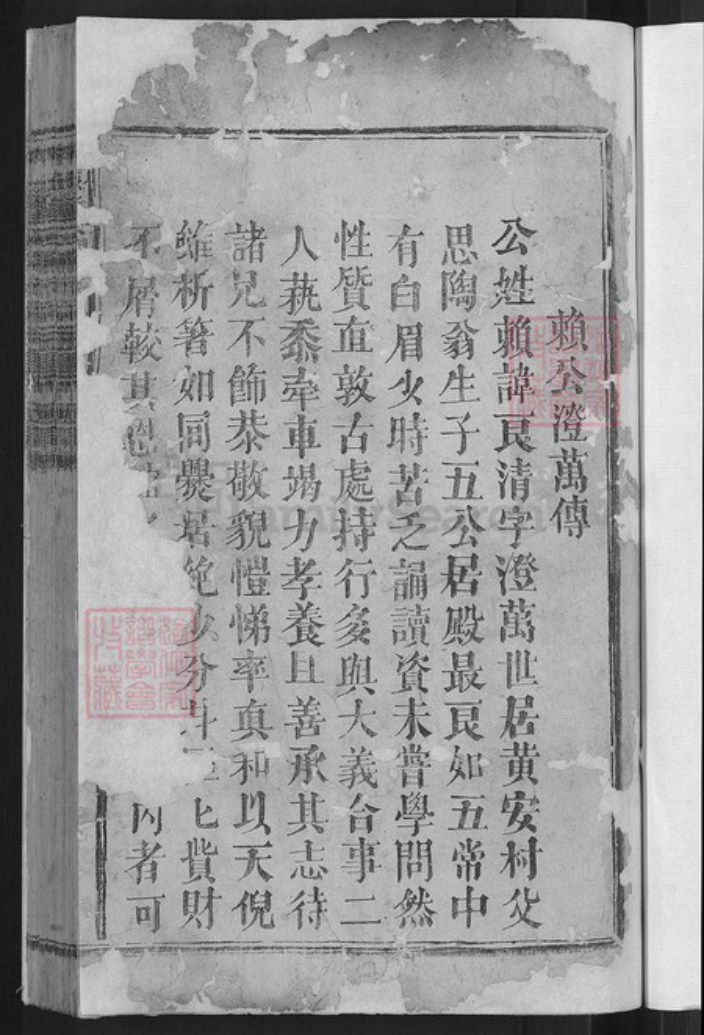 賴公澄萬傳
公姓賴諱良清字澄萬世居黄安村父
思陶翁生子五公居殿最良如五常中
有白眉少時苦乏誦讀資未嘗學問然
性質直敦古處持行多與大義合事二
人蓺黍牽車竭力孝養且善承其志待
諸兄不飾恭敬貌愷悌率真和以天倪
雖析箸如同爨居絶少分
貲財
不屑較其
内者可